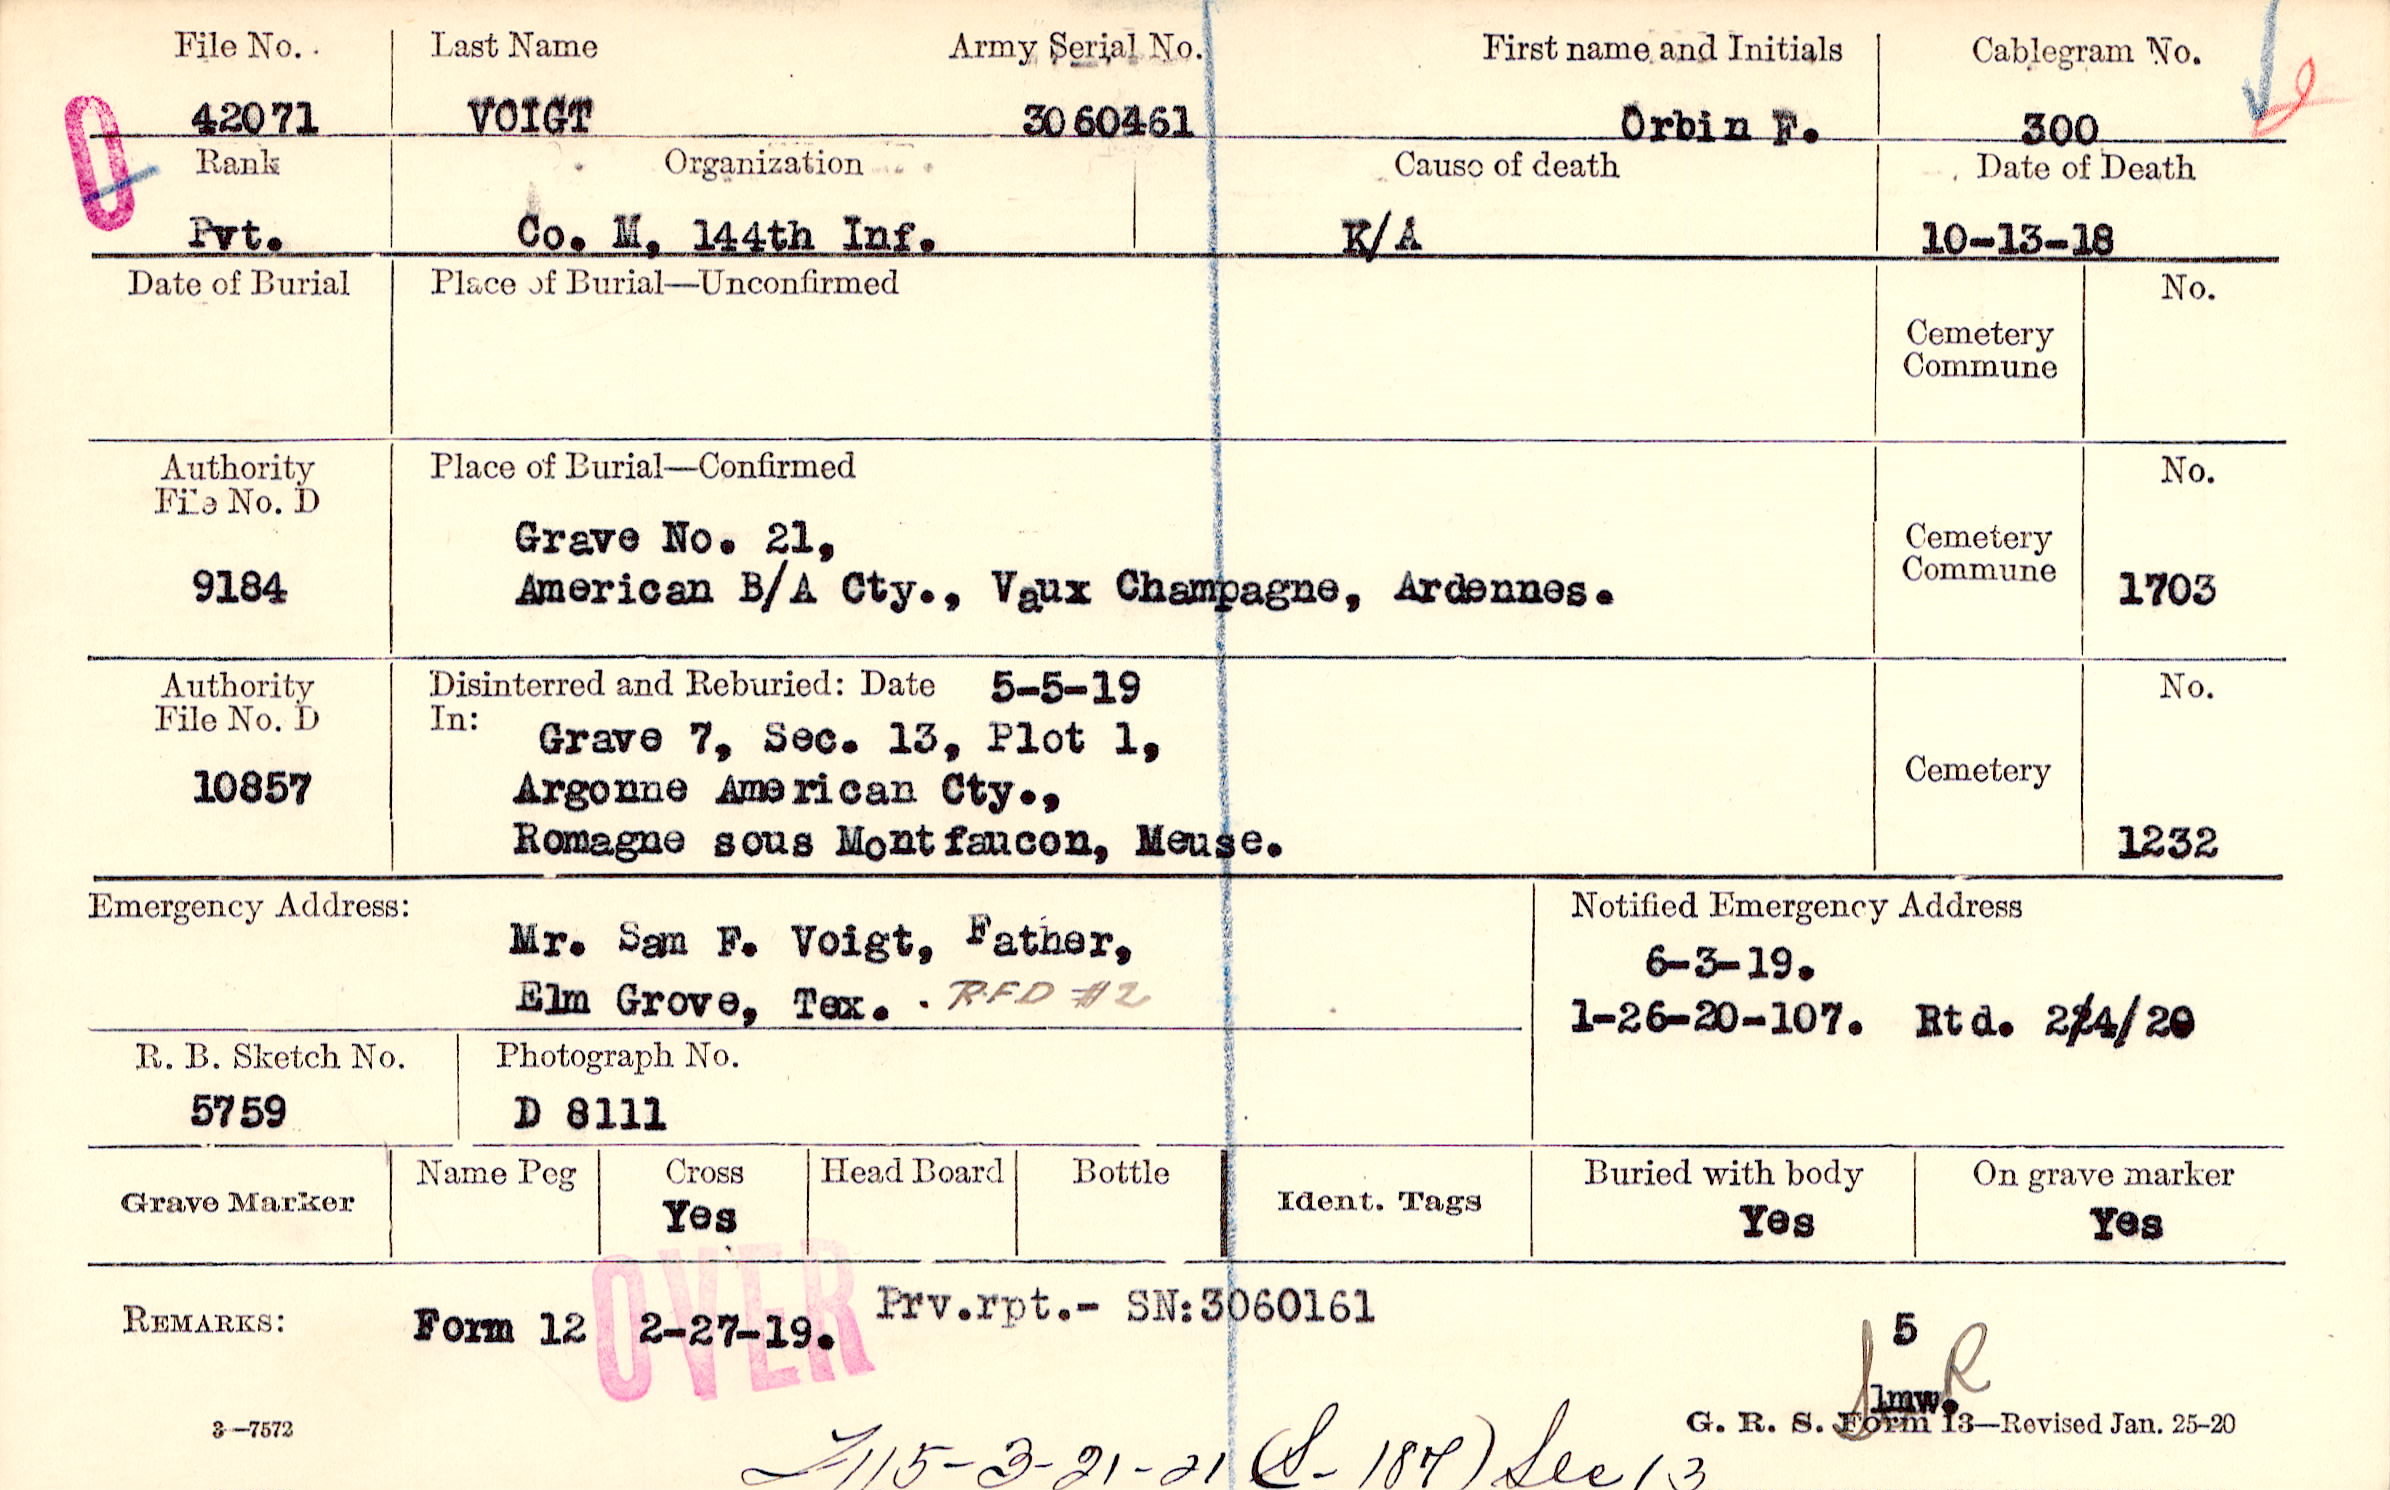 File No. Last Name Army Serial No. First name and Initials Cablegram No.
42071 VOIGT 3060461 Orbin F. 300
Rank Organization Cause of death Date of Death
Pvt. Co. M, 144th Inf. K/A 10-13-18
Date of Burial Place of Burial—Unconfirmed No.
Cemetery
Commune
Authority Place of Burial—Confirmed No.
File No. D
Grave No. 21, Cemetery
9184 American B/A Cty., Vaux Champagne, Ardennes. Commune 1703
Authority Disinterred and Reburied: Date 5-5-19 No.
File No. D In: Grave 7, Sec. 13, Plot 1,
10857 Argonne American Cty., Cemetery
Romagne sous Montfaucon, Meuse. 1232
Emergency Address: Notified Emergency Address
Mr. Sam F. Voigt, Father, 6-3-19.
Elm Grove, Tex. RFD #2 1-26-20-107. Rtd. 2/4/20
R. B. Sketch No. Photograph No.
5759 D 8111
Grave Marker Name Peg Cross Head Board Bottle Ident. Tags Buried with body On grave marker
Yes Yes Yes
OVER
REMARKS: Form 12 2-27-19. Prv.rpt.- SN:3060161 5
lmw.
3—7572 G. R. S. Form 13—Revised Jan. 25-20
115-3-21-21 (S-187) Sec 13